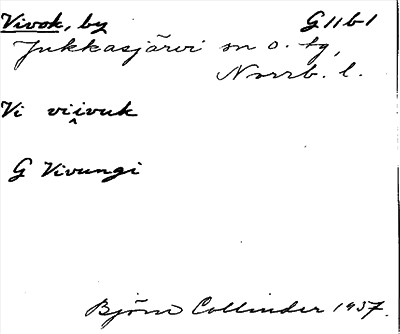 Vivok, by G11b1
Jukkasjärvi sn o. tg,
Norrb. l.
Vi viivuk
G Vivungi
Björn Collinder 1957.